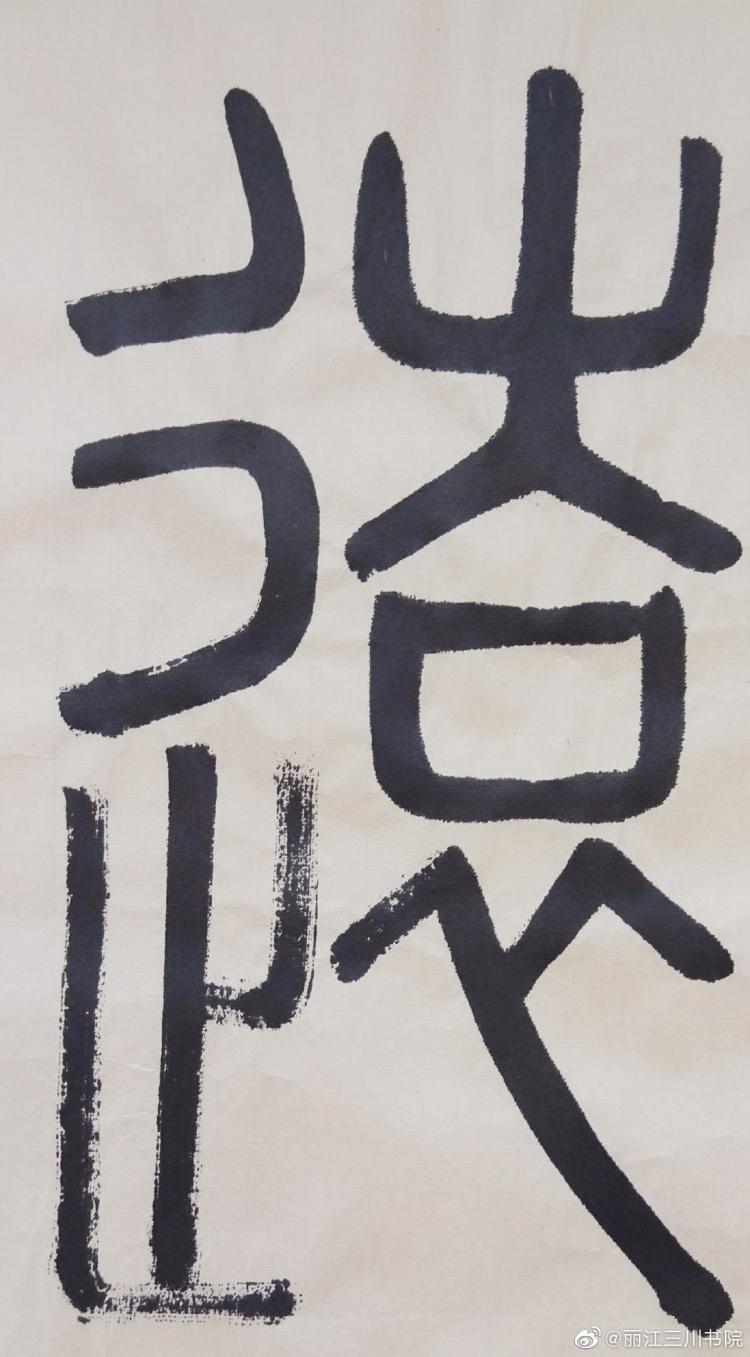 遠
@丽江三川书院